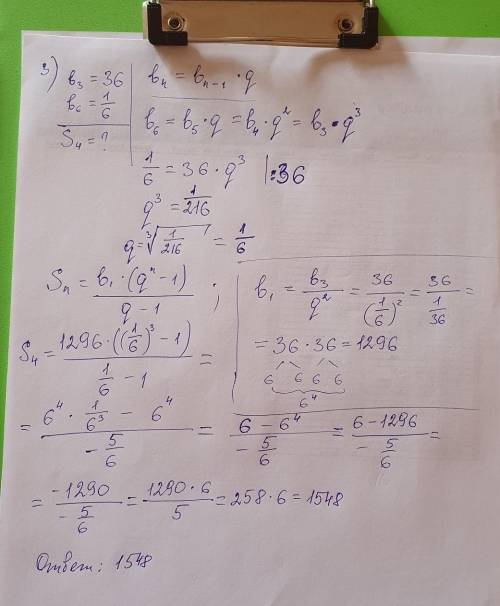 3) b₃ = 36
b₆ = 1/6
S₄ = ?
bₙ = bₙ₋₁ · q
b₆ = b₅ · q = b₄ · q² = b₃ · q³
1/6 = 36 · q³ |:36
q³ = 1/216
q = ∛(1/216) = 1/6
Sₙ = b₁ · (qⁿ - 1) / (q - 1) ;
b₁ = b₃/q² = 36/(1/6)² = 36/(1/36) =
= 36 · 36 = 1296
6 6 6 6
6⁴
S₄ = 1296 · ((1/6)³ - 1) / (1/6 - 1) =
= (6⁴ · 1/6³ - 6⁴) / (- 5/6) = (6 - 6⁴) / (- 5/6) = (6 - 1296) / (- 5/6) =
= -1290 / (- 5/6) = 1290 · 6 / 5 = 258 · 6 = 1548
Ответ: 1548